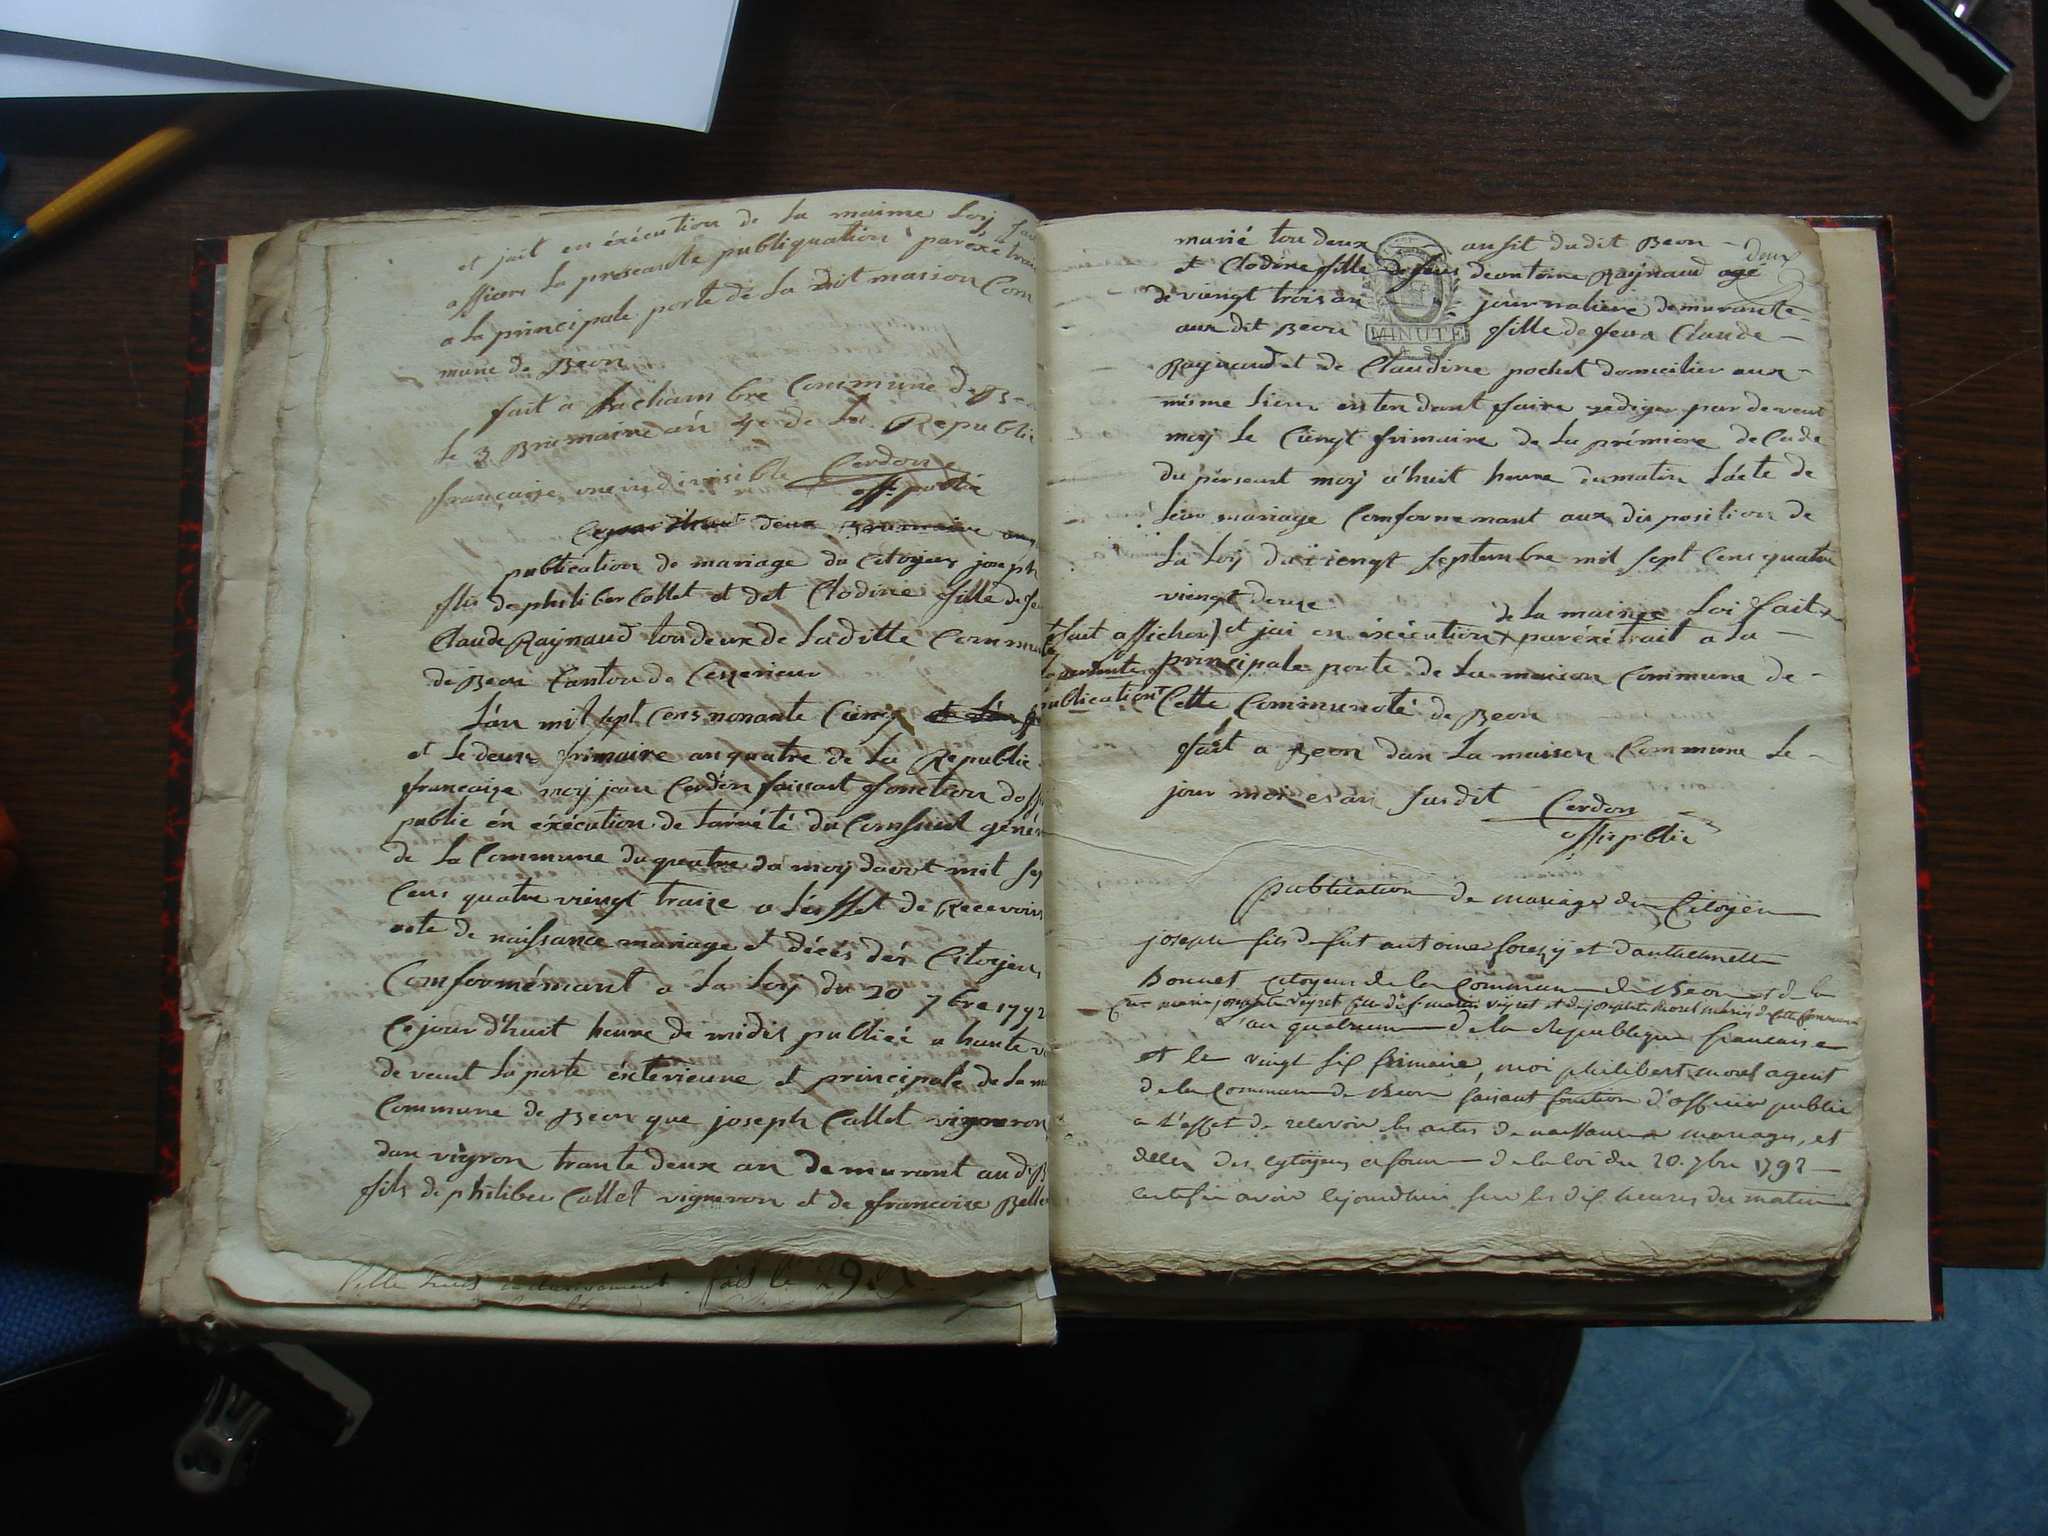 et jait en éxécution de La maime Loij
afficer La preseante publiquation par éxetrai
a La principale porte de La dit maison Com
mune de Beon
fait a La chambre Commune de B
Le 3 Brumaire an 4e de La Republi
française une indivisible Cerdon
off. public
Cejourdhuit deux Brumaire an
publication de mariage du Citoyen joseph
fils de philiber Callet et det Clodine fille de feu
Claude Raÿnaud tou deux de Laditte Commu
de Beon Canton de Ceyzerieux
L'an mil sept Cens nonante Cienq et L'an
et Le deux frimaire an quatre de La Republic
françaize moij jean Cerdon faissant fonction d'off
public én éxécution de L'arrété du Conseuil génér
de La Commune du quatre du moij daout mil sep
Cens quatre viengt traize a L'éffet de Recevoir
acte de naissance mariage et décés dés Citoijens
Comformémant a La Loij du 20 7bre 1792
Ce jour d'huit heure de midis publiéé a haute v
devant La porte éxterieure et principale de La m
Commune de Beon que joseph Callet vigneron
dan vigron trante deux an demurant audi B
fils de philiber Callet vigneron et de francoise Belle
fait le 29
marié tou deux ausit dudit Beon
deux
et Clodine fille de feux deantoine Raÿnaud agé
de viengt trois an journaliere demurante
MINUTE
aux dit Beon fille de feux Claude
Raÿnaud et de Claudine pochet domicilier aux
méme Lieux entendant faire rediger par devent
moij Le Ciengt frimaire de La prémiere decade
du pérseant moij a huit heure du matin L'acte de
Leur mariage Comformemant aux disposition de
La Loij du viengt septembre mil sept Cens quatre
viengt deux de la mainze Loi fait
fait afficher) et jai en éxécution par éxétrait a La
presente principale porte de La maison Commune de
publication Cette Communoté de Beon
fait a Beon dan La maison Commune Le
jour moi es an susdit Cerdon
offis public
publication de mariage du Citoÿen
joseph fils de fut antoine forezÿ et dantuennette
Bonnet citoyens de la Commune de Beon et de la
Cne marie josephte veÿret fille de f. martin veÿret et de josephte morel mariés de cette Commune
L'an quatrieme de la Republique francaise
et le vingt six frimaire, moi philibert morel agent
de la Commune de Beon faisant fonction d'officier public
a l'effet de recevoir les actes de naissances mariages, et
déces des cytoÿens a forme de la loi du 20. 7bre 1792
certifie avoir cejourdhui sur les dix heures du matin